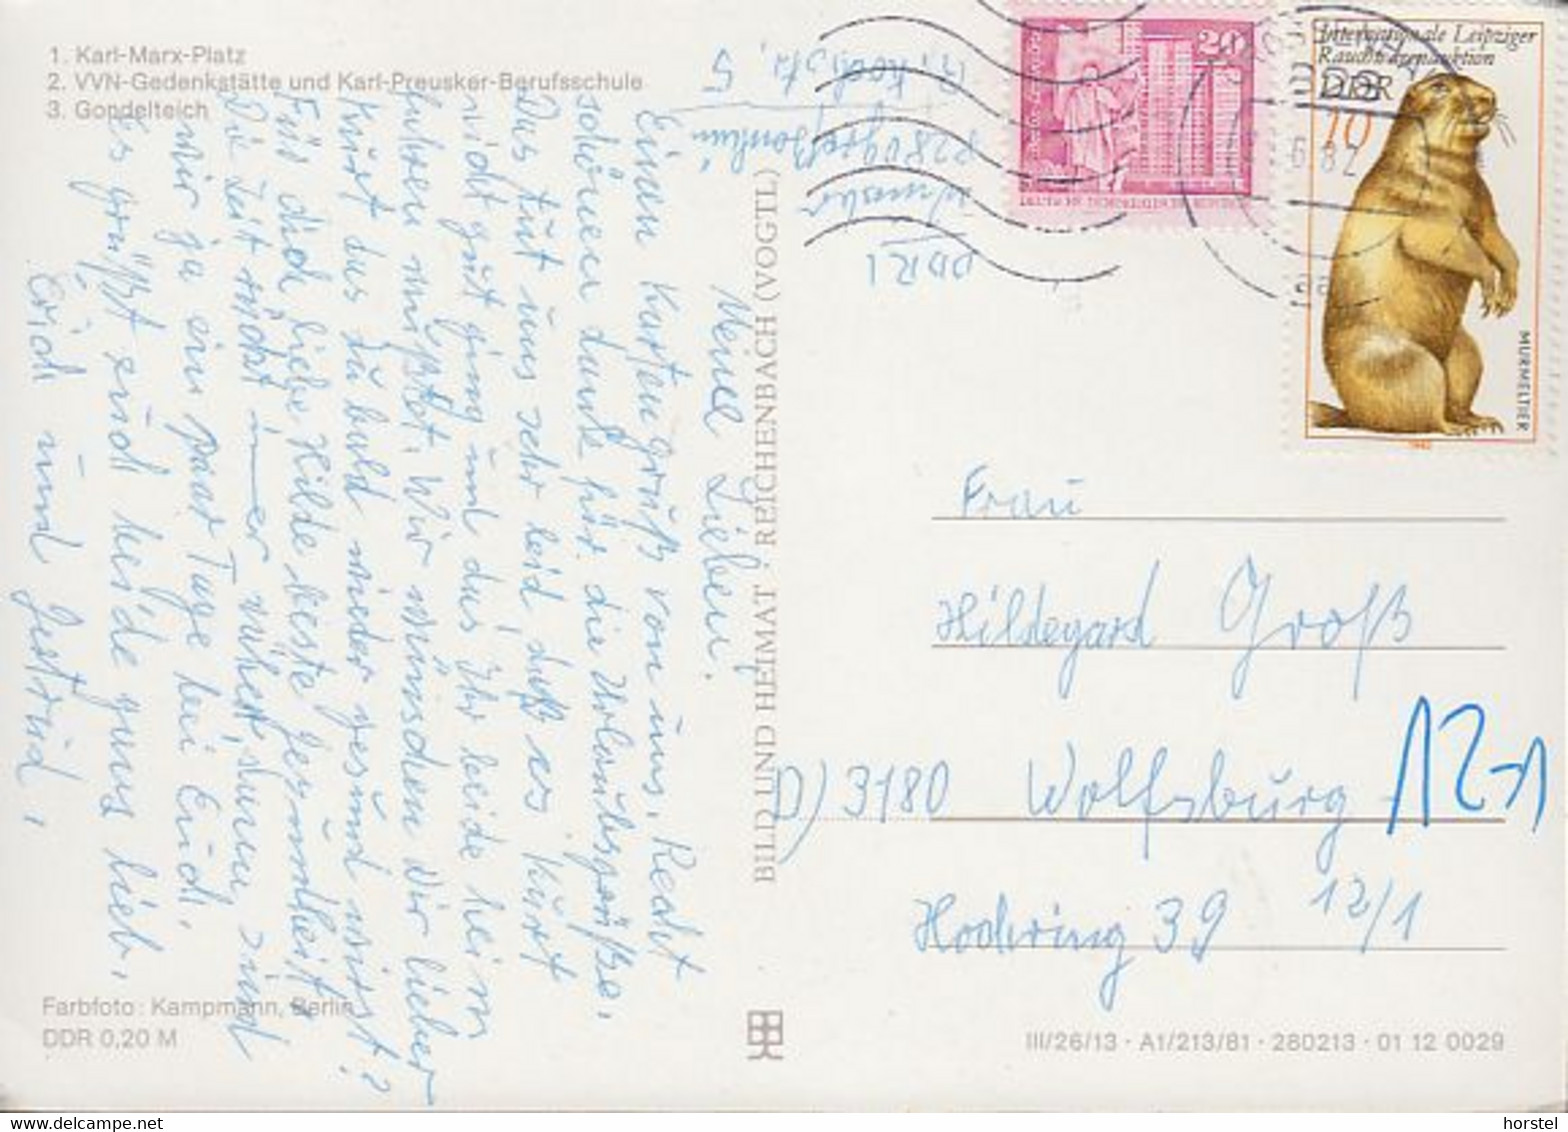 1. Karl-Marx-Platz
2. VVN-Gedenkstätte und Karl-Preusker-Berufsschule
3. Gondelteich
Meine Lieben.
Einen Kartengruß von uns. Recht
schönen dank für die Urlaubsgrüße,
Das tut uns sehr leid, daß es Kurt
nicht gut ging und das Ihr beide heim
fahren mußtet. Wir wünschen Dir lieber
Kurt das du bald wieder gesund wirst?
Für dich liebe Hilde beste Gesundheit
Die Zeit rückt immer näher, dann sind
wir ja ein paar Tage bei Euch.
Es grüßt euch beide ganz lieb,
Erich und Gertrud,
Farbfoto: Kampmann, Berlin
DDR 0,20 M
BILD UND HEIMAT · REICHENBACH (VOGTL)
5
DDR
20
DEUTSCHE DEMOKRATISCHE REPUBLIK
Internationale Leipziger
Rauchwarenauktion
DDR
10
MURMELTIER
1982
82
Frau
Hildegard Groß
(D) 3180 Wolfsburg 12-1
Hochring 39 12/1
III/26/13 · A1/213/81 · 280213 · 01 12 0029
horstel